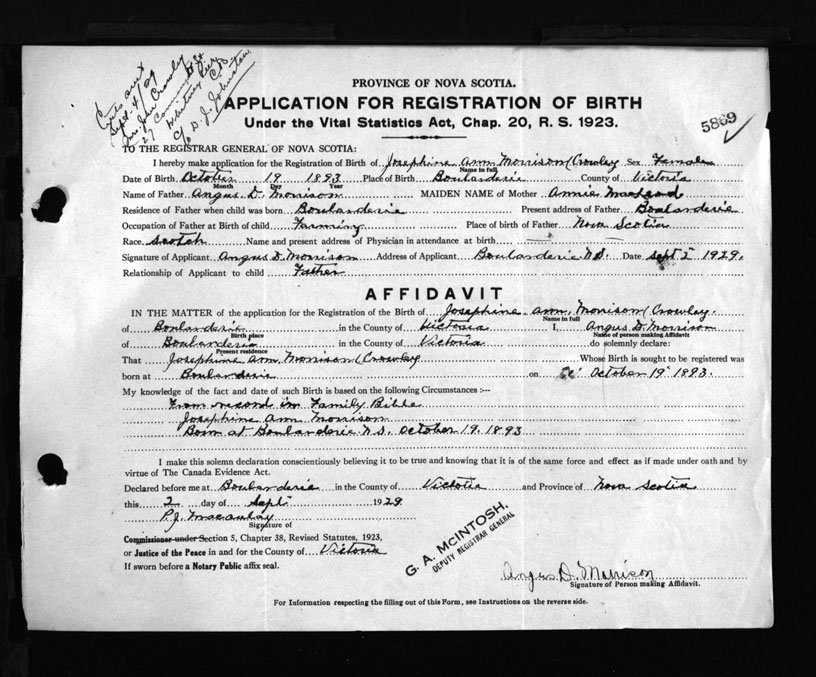 Cert's out
Sept 4/29
Mrs John Crowley
27 Convent St
Whitney Pier
C.B.
c/o D. J. Johnston
PROVINCE OF NOVA SCOTIA.
APPLICATION FOR REGISTRATION OF BIRTH
Under the Vital Statistics Act, Chap. 20, R. S. 1923.
5869
TO THE REGISTRAR GENERAL OF NOVA SCOTIA:
I hereby make application for the Registration of Birth of Josephine Ann Morrison (Crowley Sex Female
Name in full
Date of Birth October 19 1893 Place of Birth Boularderie County of Victoria
Month Day Year
Name of Father Angus D. Morrison MAIDEN NAME of Mother Annie MacLeod
Residence of Father when child was born Boularderie Present address of Father Boularderie
Occupation of Father at Birth of child Farming Place of birth of Father Nova Scotia
Race Scotch Name and present address of Physician in attendance at birth
Signature of Applicant Angus D. Morrison Address of Applicant Boularderie N.S. Date Sept 2 1929.
Relationship of Applicant to child Father
AFFIDAVIT
IN THE MATTER of the application for the Registration of the Birth of Josephine Ann Morrison (Crowley.
Name in full
of Boularderie in the County of Victoria I, Angus D. Morrison
Birth place Name of person making Affidavit
of Boularderie in the County of Victoria do solemnly declare:
Present residence
That Josephine Ann Morrison (Crowley Whose Birth is sought to be registered was
born at Boularderie on October 19 1893.
My knowledge of the fact and date of such Birth is based on the following Circumstances :—
From record in Family Bible
Josephine Ann Morrison
Born at Boularderie N.S. October 19. 1893
I make this solemn declaration conscientiously believing it to be true and knowing that it is of the same force and effect as if made under oath and by
virtue of The Canada Evidence Act.
Declared before me at Boularderie in the County of Victoria and Province of Nova Scotia
this 2 day of Sept 1929
P.J. Macaulay
Signature of
Commissioner under Section 5, Chapter 38, Revised Statutes, 1923,
or Justice of the Peace in and for the County of Victoria
If sworn before a Notary Public affix seal.
G. A. McINTOSH,
DEPUTY REGISTRAR GENERAL
Angus D. Morrison
Signature of Person making Affidavit.
For Information respecting the filling out of this Form, see Instructions on the reverse side.